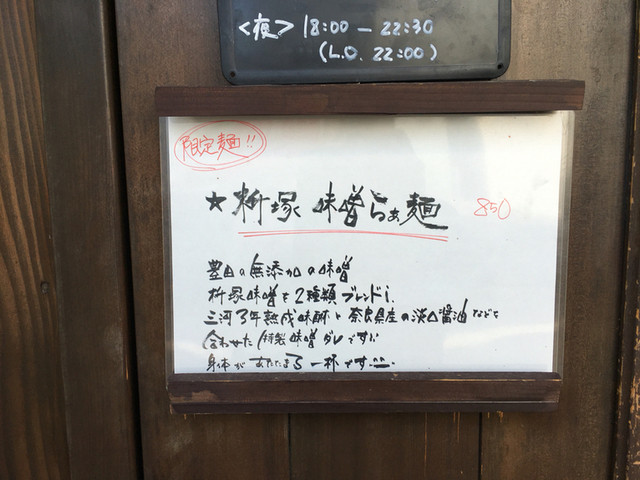 <夜> 18:00 — 22:30
(L.O. 22:00)
限定麺!!
★枡塚 味噌らぁ麺 850
豊田の無添加の味噌
枡塚味噌を2種類ブレンドし
三河3年熟成味醂と奈良県産の淡口醤油などを
合わせた 特製味噌ダレです!!
身体が あたたまる 一杯です